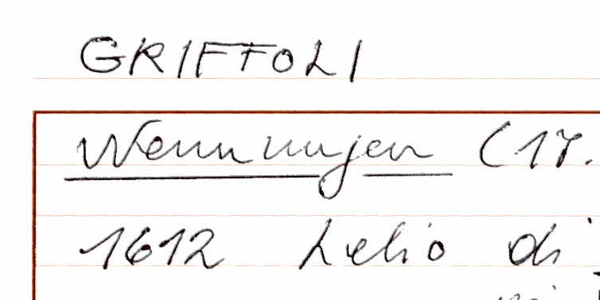 GRIFFOLI
Nennungen (17.
1612 Lelio di